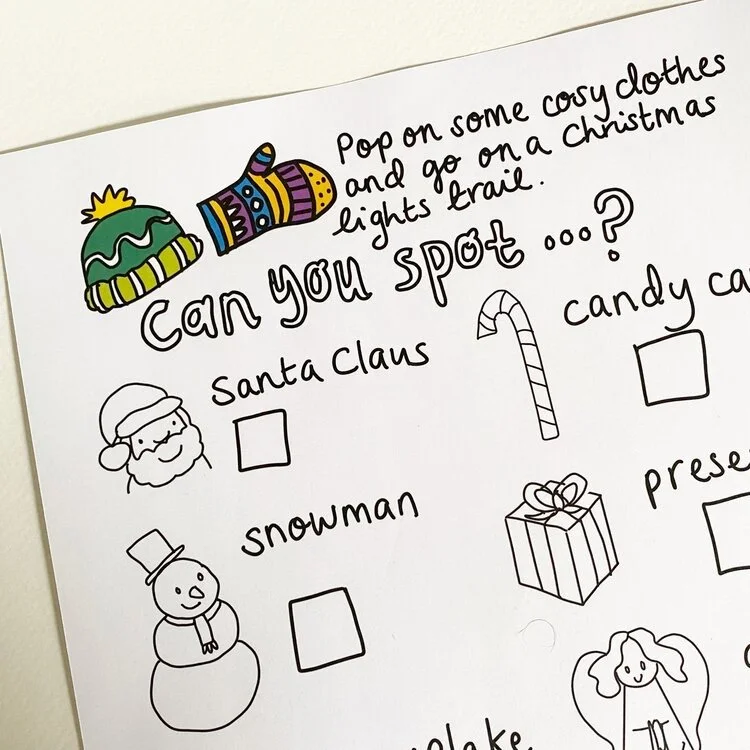 Pop on some cosy clothes
and go on a Christmas
lights trail.
Can you spot ...?
Santa Claus
candy ca
snowman
prese
lake